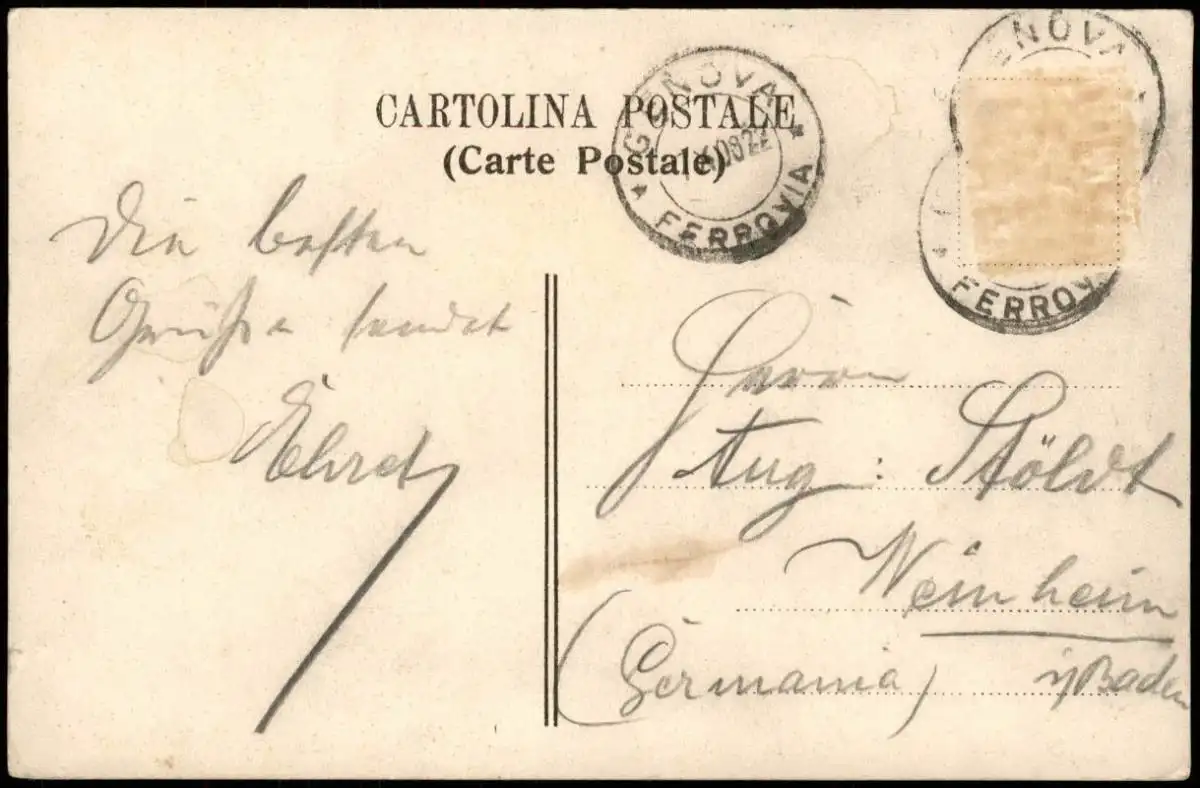 CARTOLINA POSTALE
(Carte Postale)
GENOVA
FERROVIA
ENOVA
FERROV
Die besten
Grüße sendet
Ehret
Herrn
Aug: Stöldt
Weinheim
(Germania) i/Baden